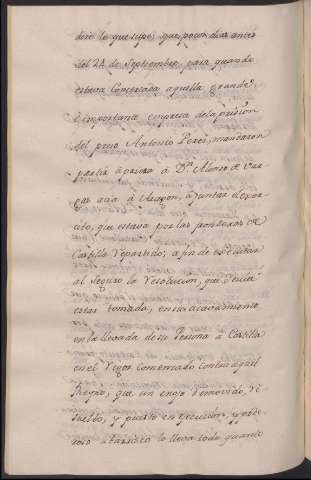 diré lo que supe: que pocos dias antes
del 24 de Septiembre, para quando
estava Concertada aquella grande,
é importante empresa de la prision
del preso Antonio Perez, mandaron
partir á priesa á Dⁿ Alonso de Var
gas acia á Aragon, á juntar el exer
cito, que estava por las fronteras de
Castilla repartido; a fin de executar
al seguro la resolucion, que devia
estar tomada, en su acavamiento
en la llevada de su Persona a Castilla
en el rigor Comenzado Contra aquel
Reyno, que un enojo removido, re
suelto, y puesto en execucion, y pode
roso a barrisco lo lleva todo quanto